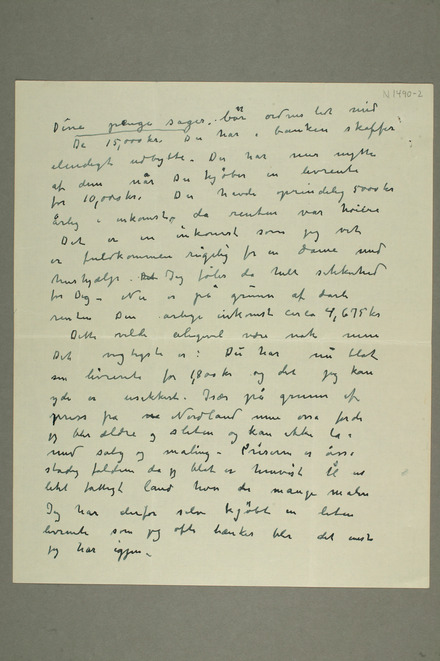 N 1490-2
Dine penge sager. bør ordnes lit mid
De 15,000 kr. Du har i banken skaffer
elendigt udbytte. Du har mer nytte
af dem når Du kjøber en livrente
for 10,000 kr. Du havde oprindelig 5000 kr
årlig i inkomst, da renten var höiere
Det er en inkomst som jeg vet
er fuldkommen rigelig for en dame med
hushjælp. Jeg føler da helt sikkerhed
for Dig. Nu er på grunn af
renten Din årlige inkomst circa 4,675 kr
Dette vilde alligevel være nok men
Det vigtigste er: Du har nu blot
en livrente for 1,800 kr og det jeg kan
yde er usikkert. Især på grunn af
fra Nordland men ossa fordi
jeg blir ældre og sliten og kan ikke
med salg og maling. Priserne er også
stadig faldene da jeg blot er henvist til et
litet fattigt land hvor de mange malere
Jeg har derfor selv kjøbt en liten
livrente som jeg ofte tænker blir det eneste
jeg har igjen.